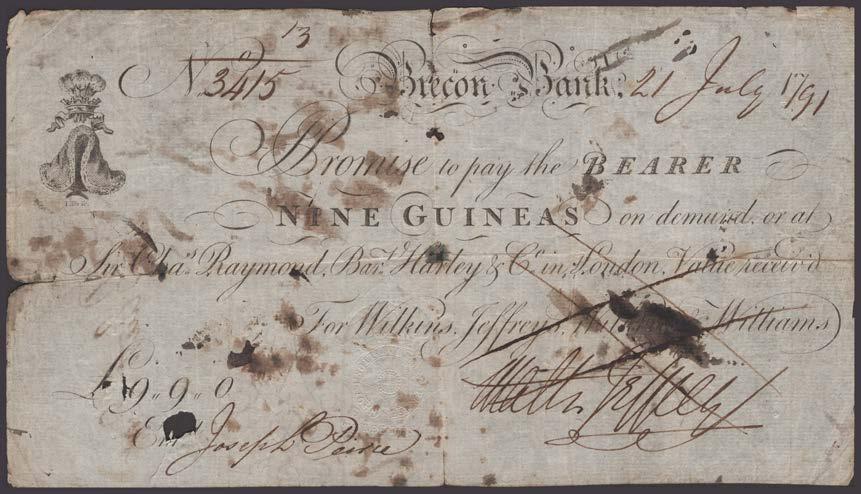 13
No. 3415 Brecon Bank, 21 July 1791
Promise to pay the BEARER
NINE GUINEAS on demand, or at
Sir Chas. Raymond, Bart. Harley & Co. in London, Value receiv'd
For Wilkins, Jeffreys, & Williams
£9 " 9 " 0
Entd. Joseph
Walter Jeffreys